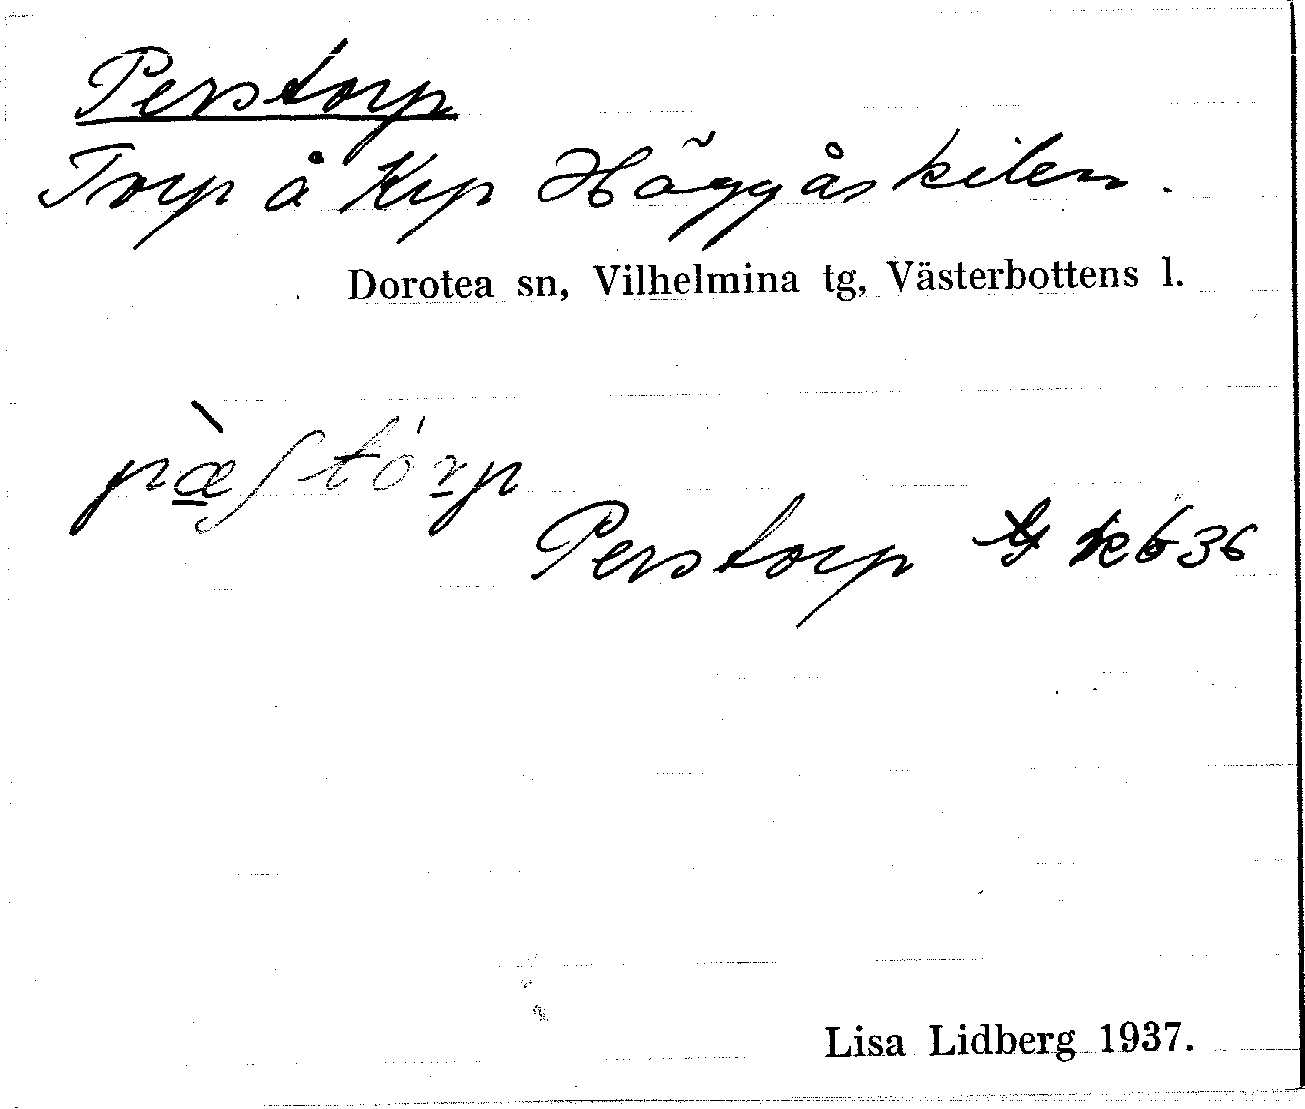 Perstorp
Torp å Krp Häggåskilen.
Dorotea sn, Vilhelmina tg, Västerbottens l.
pæ̀ʃtórp
Perstorp kb 36
Lisa Lidberg 1937.